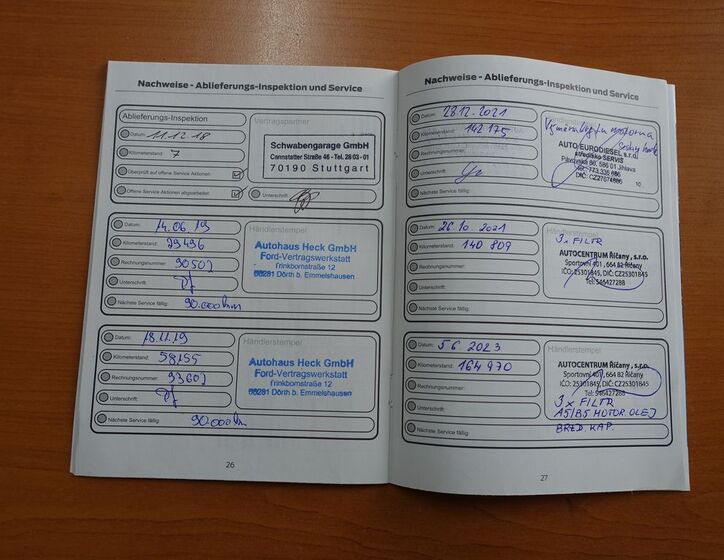 Nachweise - Ablieferungs-Inspektion und Service
Ablieferungs-Inspektion
Datum: 11.12.18
Kilometerstand: 7
Überprüft auf offene Service Aktionen:
Offene Service Aktionen abgearbeitet:
Vertragspartner
Schwabengarage GmbH
Cannstatter Straße 46 - Tel. 28 03 - 01
70190 Stuttgart
Unterschrift:
Datum: 14.06.19
Kilometerstand:
Rechnungsnummer: 90507
Unterschrift:
Nächste Service fällig: 90.000km
Händlerstempel
Autohaus Heck GmbH
Ford-Vertragswerkstatt
Trinkbornstraße 12
56281 Dörth b. Emmelshausen
Datum: 18.11.19
Kilometerstand: 58155
Rechnungsnummer: 93602
Unterschrift:
Nächste Service fällig: 90.000km
Händlerstempel
Autohaus Heck GmbH
Ford-Vertragswerkstatt
Trinkbornstraße 12
56281 Dörth b. Emmelshausen
26
Nachweise - Ablieferungs-Inspektion und Service
Datum: 28.12.2021
Kilometerstand: 142 175
Rechnungsnummer:
Unterschrift:
Nächste Service fällig:
Händlerstempel
AUTO EURODIESEL s.r.o.
středisko SERVIS
586 01 Jihlava
Tel.: 773 336 686
10
Datum: 26.10.2021
Kilometerstand: 140 809
Rechnungsnummer:
Unterschrift:
Nächste Service fällig:
Händlerstempel
3x FILTR
AUTOCENTRUM Říčany, s.r.o.
Sportovní 401, 664 82 Říčany
IČO: 25301845, DIČ: CZ25301845
Tel: 546427288
Datum: 5 6 2023
Kilometerstand: 164 970
Rechnungsnummer:
Unterschrift:
Nächste Service fällig:
Händlerstempel
AUTOCENTRUM Říčany, s.r.o.
Sportovní 401, 664 82 Říčany
IČO: 25301845, DIČ: CZ25301845
Tel: 546427288
3x FILTR
A5/B5 MOTOR. OLEJ
BRZD. KAP.
27